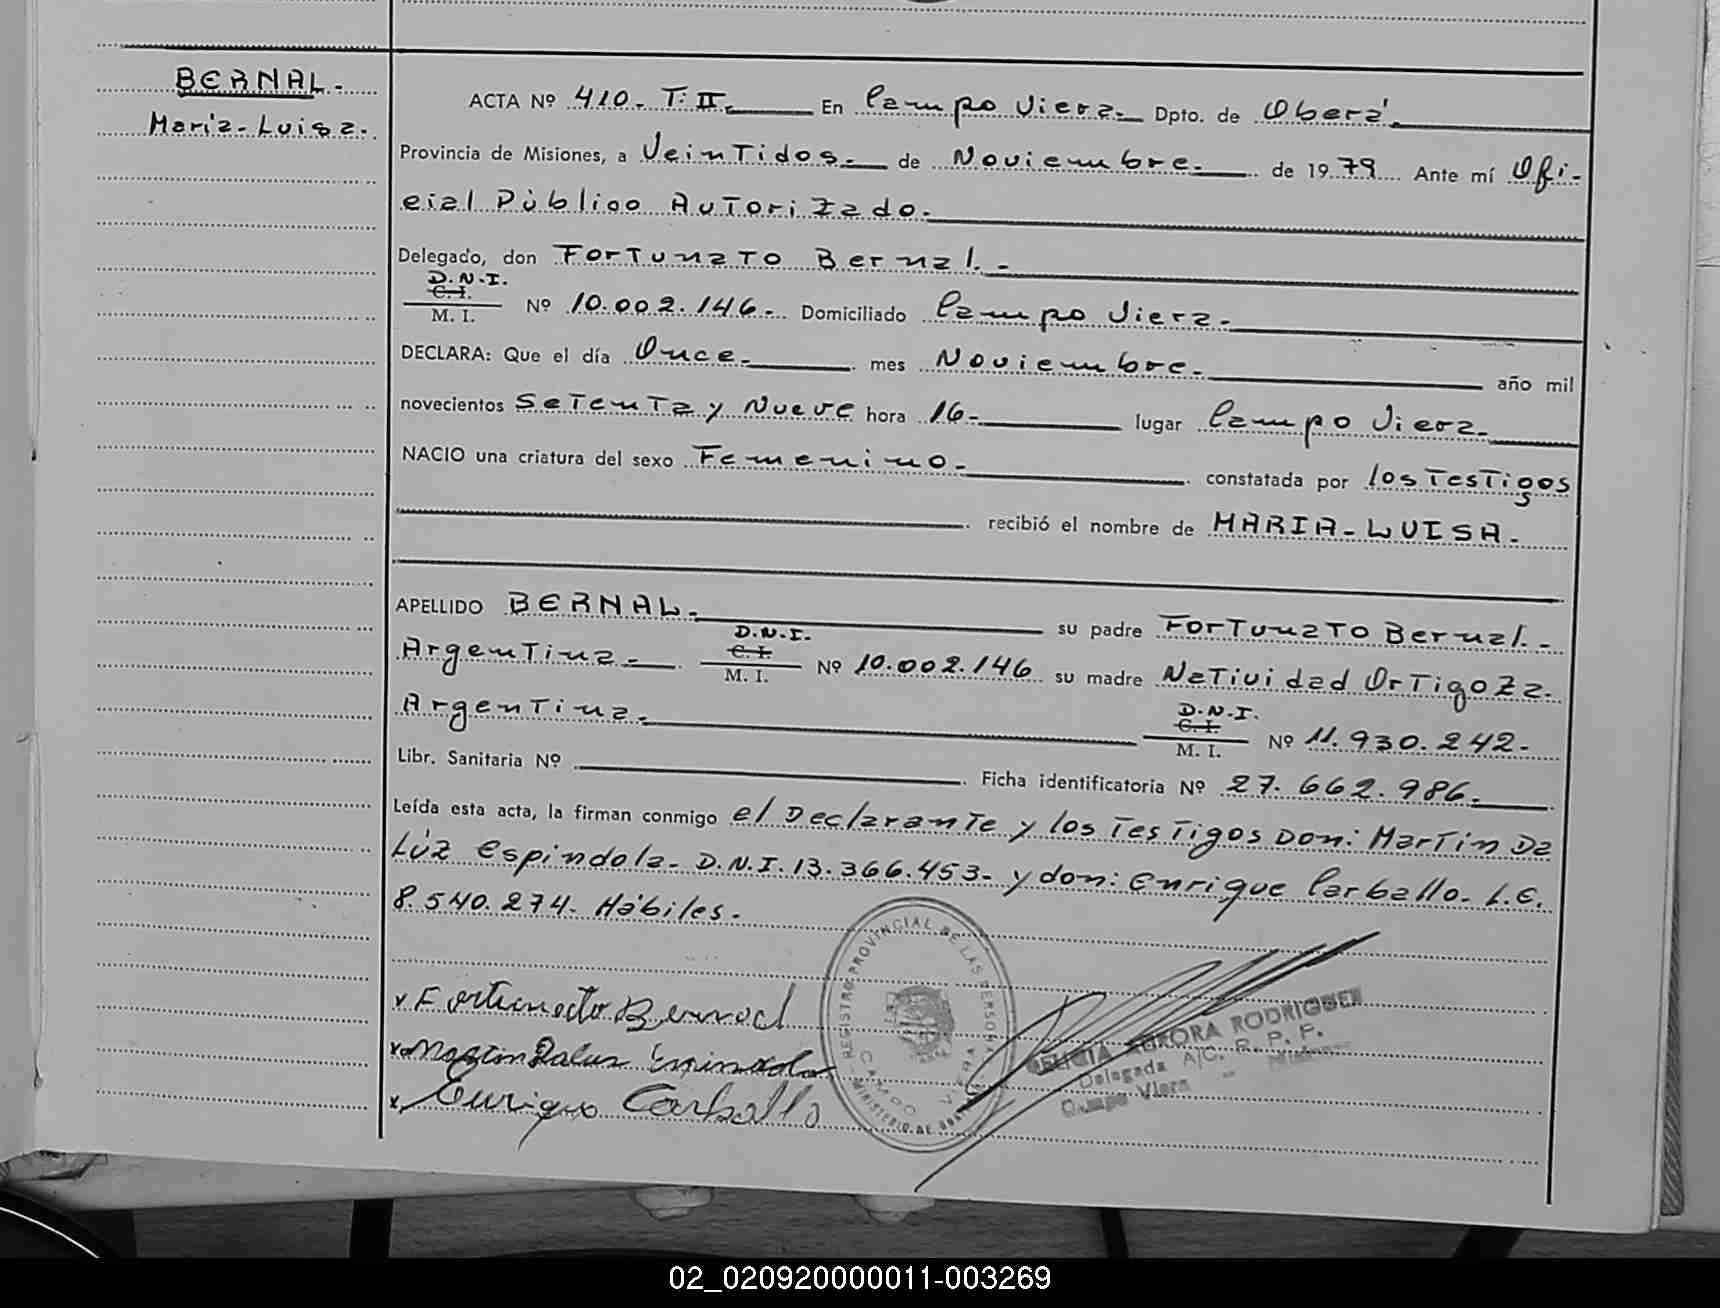 BERNAL.-
María-Luisa.
ACTA Nº 410- T: II.- En Campo Viera.- Dpto. de Oberá.
Provincia de Misiones, a Veintidos.- de Noviembre.- de 1979 Ante mí Ofi-
cial Público Autorizado.-
Delegado, don Fortunato Bernal.-
D.N.I.
C. I.
M. I. Nº 10.002.146.- Domiciliado Campo Viera.-
DECLARA: Que el día Once.- mes Noviembre.- año mil
novecientos Setenta y Nueve hora 16.- lugar Campo Viera.-
NACIO una criatura del sexo Femenino.- constatada por los Testigos
recibió el nombre de MARIA-LUISA.
APELLIDO BERNAL.- su padre Fortunato Bernal.-
D.N.I.
C. I.
Argentina.- M. I. Nº 10.002.146 su madre Natividad Ortigoza.
D.N.I.
C. I.
Argentina.- M. I. Nº 11.930.242-
Libr. Sanitaria Nº Ficha identificatoria Nº 27.662.986.
Leída esta acta, la firman conmigo el Declarante y los Testigos Don: Martin Da
Lúz Espindola- D.N.I. 13.366.453- y don: Enrique Carballo- L.E.
8.540.274- Hábiles.-
REGISTRO PROVINCIAL DE LAS PERSONAS
CAMPO VIERA
MINISTERIO DE
x Fortunato Bernal
x Enrique Carballo
AURORA RODRIGUEZ
Delegada A/C. R. P. P.
Campo Viera - Misiones
02_020920000011-003269